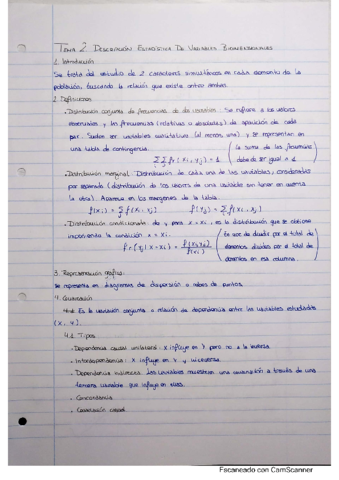 TEMA 2 DESCRIPCIÓN ESTADÍSTICA DE VARIABLES BIDIMENSIONALES
1. Introducción
Se trata del estudio de 2 caracteres simultáneos en cada elemento de la
población, buscando la relación que existe entre ambas
2. Definiciones
- Distribución conjunta de frecuencias de dos variables. Se refiere a los valores
observados y las frecuencias (relativas o absolutas) de aparición de cada
par. Suelen ser variables cualitativas (al menos una) y se representan en
una tabla de contingencia. (la suma de las frecuencias
Σ Σ fr (xi, yj) = 1 debe de ser igual a 1)
- Distribución marginal. Distribución de cada una de las variables, consideradas
por separado (distribución de los valores de una variable sin tener en cuenta
la otra). Aparece en los márgenes de la tabla.
f(xi) = Σ f(xi, yj) f(yj) = Σ f(xi, yj)
- Distribución condicionada de y para x = xi, es la distribución que se obtiene
imponiendo la condición x = xi. (Se hace de dividir por el total de
fr(yj | x = xi) = f(xi, yj) / f(xi) elementos dividos por el total de
elementos en esa columna.)
3. Representación gráfica.
Se representa en diagramas de dispersión o nubes de puntos.
4. Covariación
Es la variación conjunta o relación de dependencia entre las variables estudiadas
(x, y).
4.1 Tipos.
- Dependencia causal unilateral: x influye en Y pero no a la inversa.
- Interdependencia: x influye en Y y viceversa.
- Dependencia indirecta. Las variables muestran una covariación a través de una
tercera variable que influye en ellas.
- Concordancia
- Covariación casual
Escaneado con CamScanner